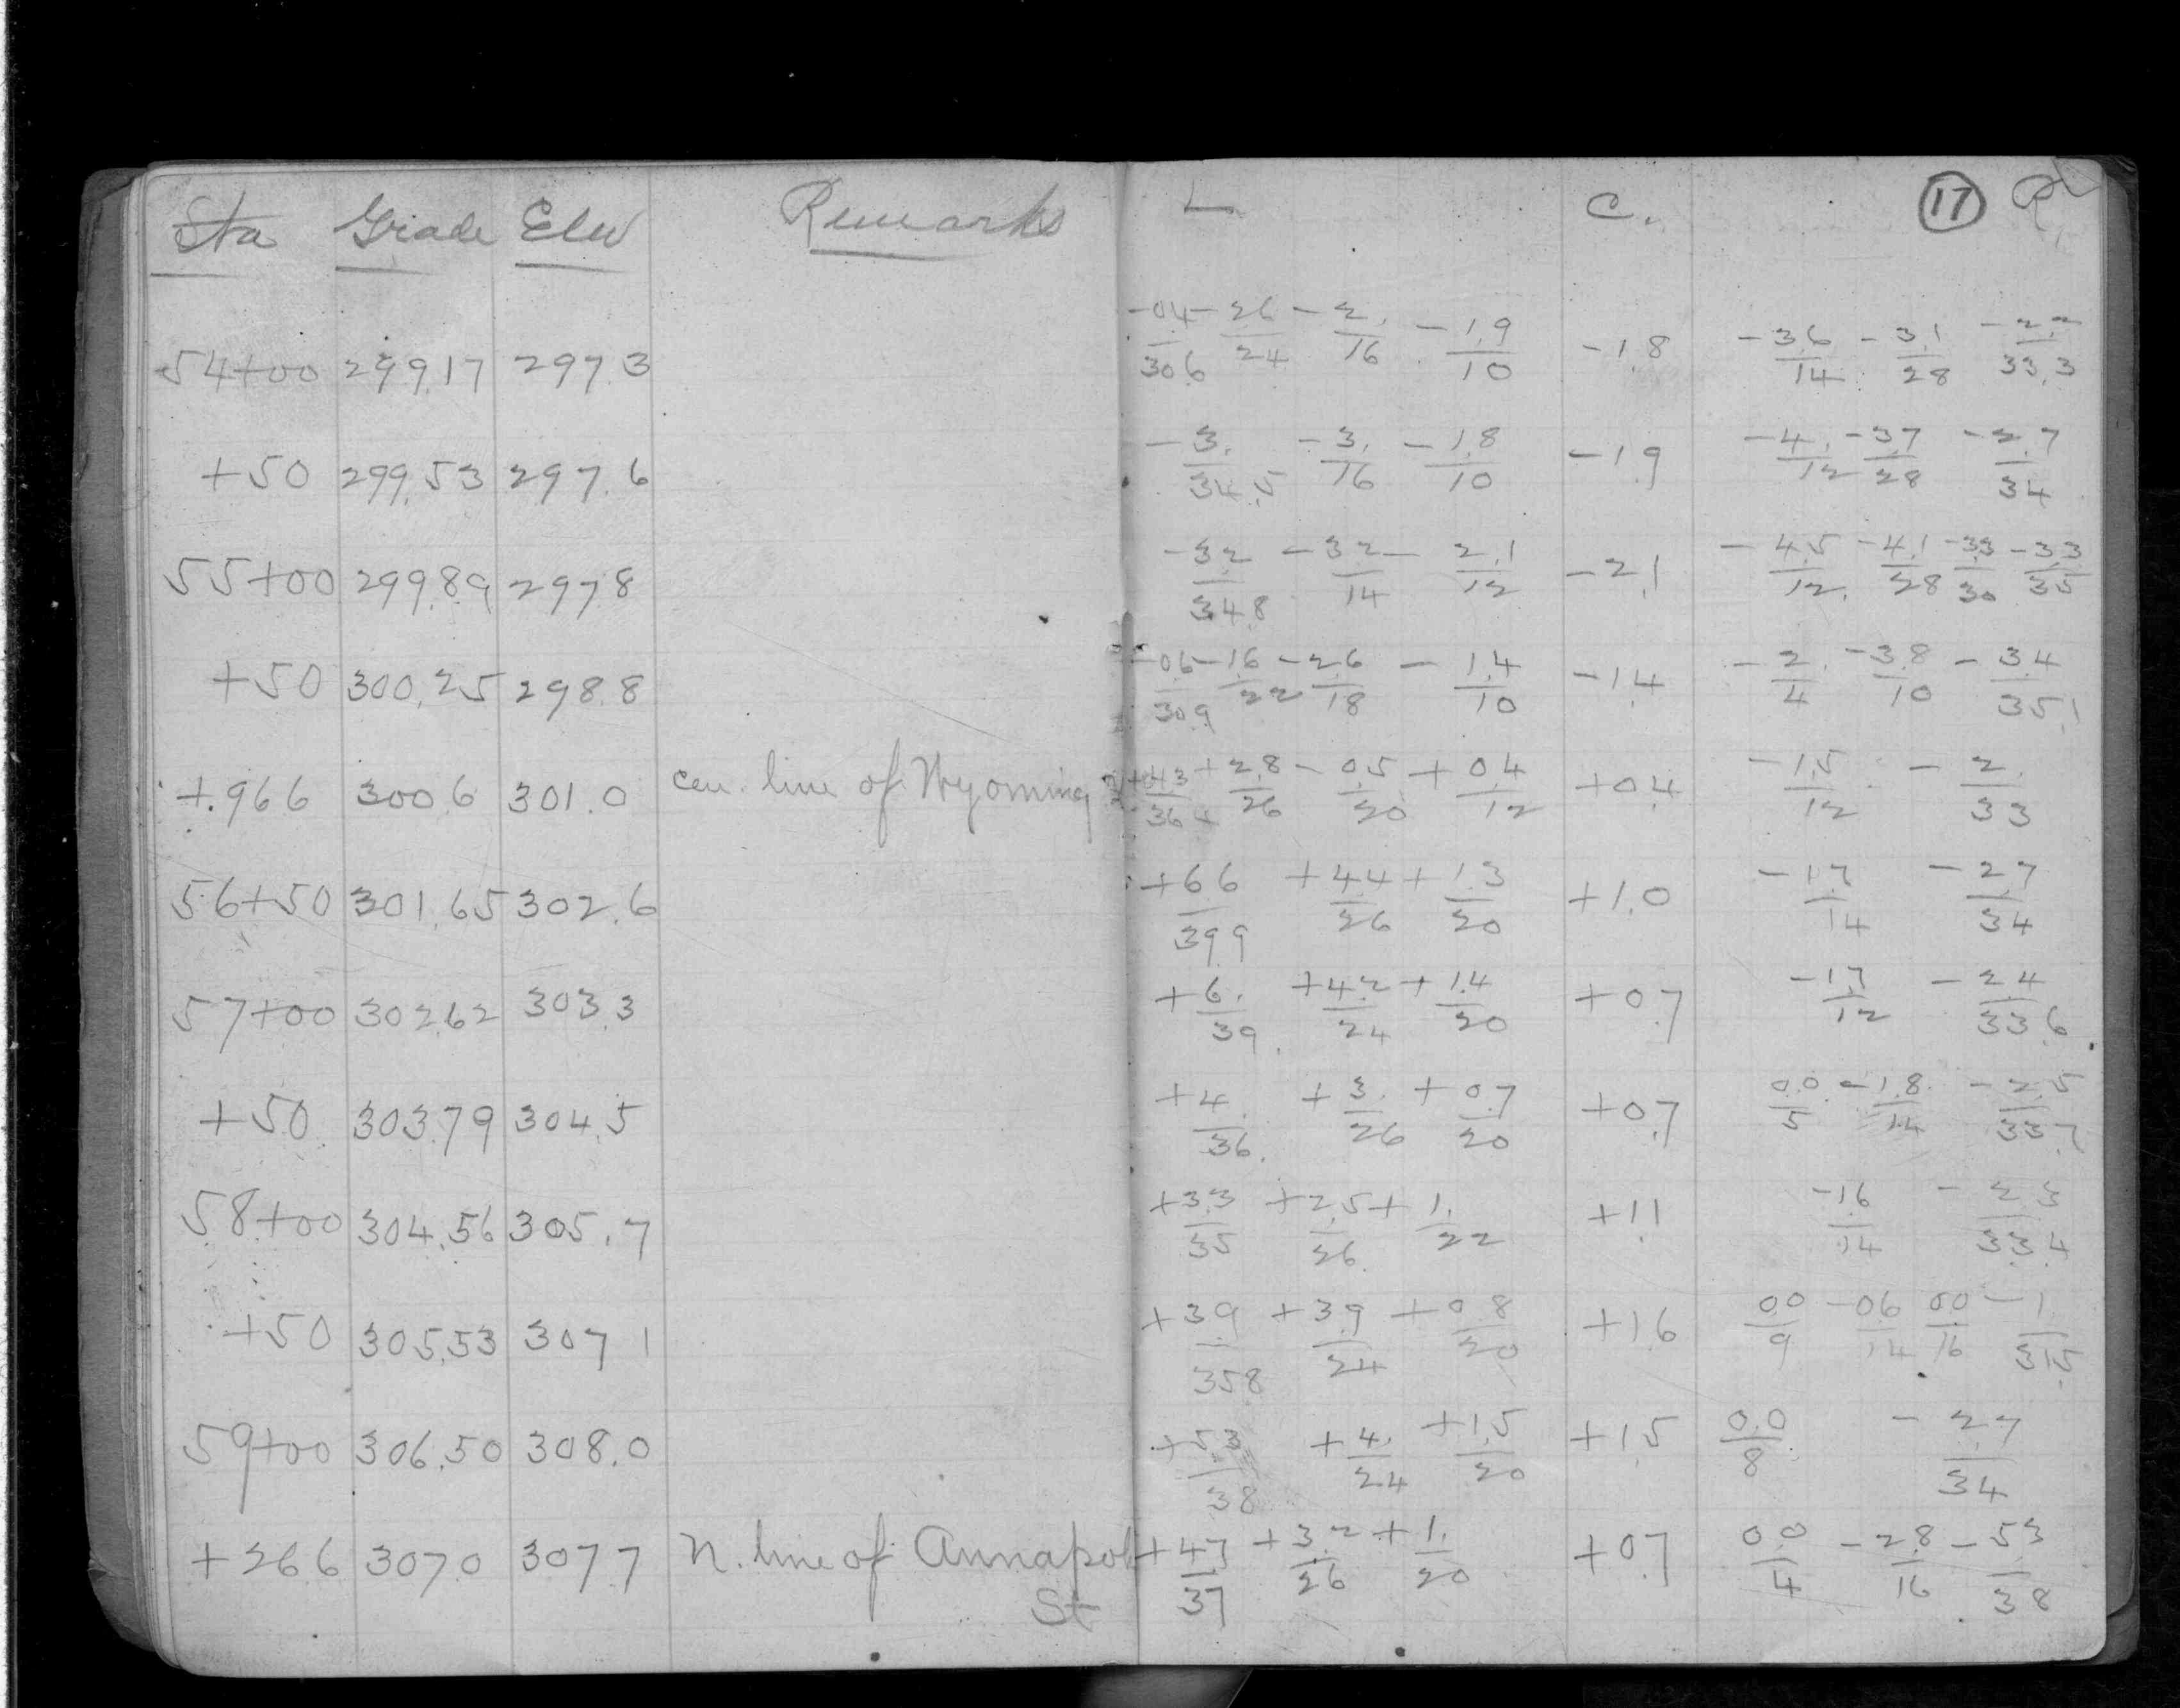 Sta Grade Elev Remarks L C. 17 R
54+00 299.17 297.3 -0.4/30.6 -2.6/24 -2./16 -1.9/10 -1.8 -3.6/14 -3.1/28 -2.2/33.3
+50 299.53 297.6 -3./34.5 -3./16 -1.8/10 -1.9 -4./12 -3.7/28 -2.7/34
55+00 299.89 297.8 -3.2/34.8 -3.2/14 -2.1/12 -2.1 -4.5/12 -4.1/28 -3.3/30 -3.3/35
+50 300.25 298.8 -0.6/30.9 -1.6/22 -2.6/18 -1.4/10 -1.4 -2./4 -3.8/10 -3.4/35.1
+.966 300.6 301.0 cen. line of Wyoming +4.3/36.4 +2.8/26 -0.5/20 +0.4/12 +0.4 -1.5/12 -2./33
56+50 301.65 302.6 +6.6/39.9 +4.4/26 +1.3/20 +1.0 -1.7/14 -2.7/34
57+00 302.62 303.3 +6./39. +4.2/24 +1.4/20 +0.7 -1.7/12 -2.4/33.6
+50 303.79 304.5 +4./36. +3./26 +0.7/20 +0.7 0.0/5 -1.8/14 -2.5/33.7
58+00 304.56 305.7 +3.3/35 +2.5/26 +1./22 +1.1 -1.6/14 -2.3/33.4
+50 305.53 307.1 +3.9/35.8 +3.9/24 +0.8/20 +1.6 0.0/9 -0.6/14 0.0/16 -1/31.5
59+00 306.50 308.0 +5.3/38 +4./24 +1.5/20 +1.5 0.0/8 -2.7/34
+26.6 307.0 307.7 N. line of Annapol +4.7/37 +3.2/26 +1./20 +0.7 0.0/4 -2.8/16 -5.3/38
St